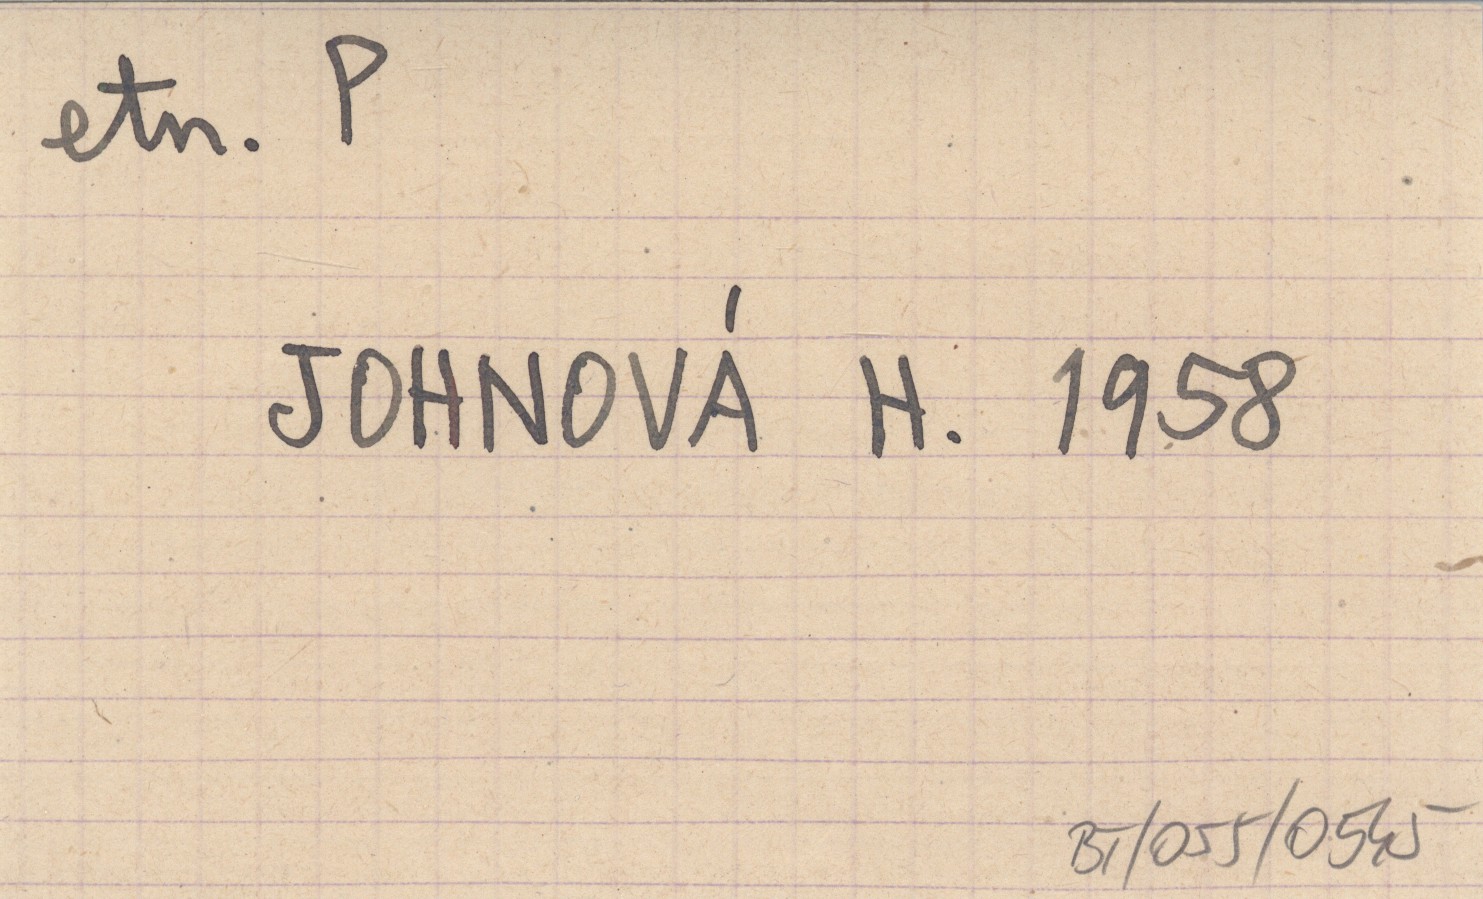 etn. P
JOHNOVÁ H. 1958
BT/055/0545